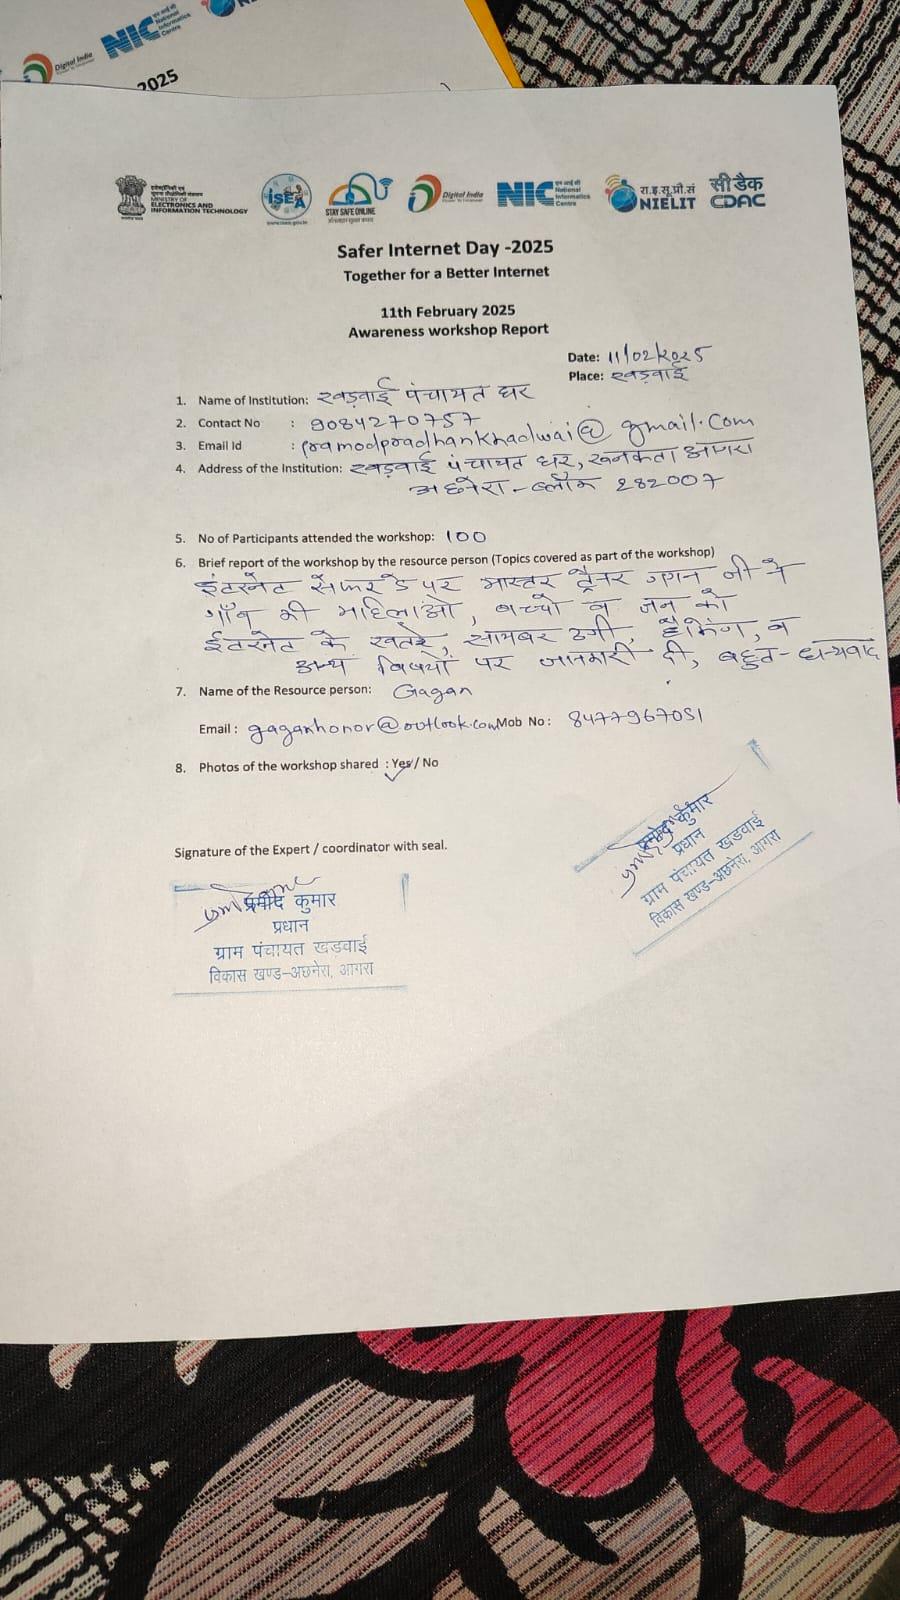 Digital India
NIC
एन आई सी
National
Informatics
Centre
2025
इलेक्ट्रॉनिकी एवं
सूचना प्रौद्योगिकी मंत्रालय
MINISTRY OF
ELECTRONICS AND
INFORMATION TECHNOLOGY
ISEA
STAY SAFE ONLINE
Digital India
NIC
एन आई सी
National
Informatics
Centre
रा.इ.सू.प्रौ.सं
NIELIT
सी डैक
CDAC
Safer Internet Day -2025
Together for a Better Internet
11th February 2025
Awareness workshop Report
Date: 11/02/2025
Place: खड़वाई
1. Name of Institution: खड़वाई पंचायत घर
2. Contact No : 9084270757
3. Email Id : pramodpradhankhadwai@gmail.com
4. Address of the Institution: खड़वाई पंचायत घर, रुनकता आगरा
अछनेरा-ब्लॉक 282007
5. No of Participants attended the workshop: 100
6. Brief report of the workshop by the resource person (Topics covered as part of the workshop)
इंटरनेट सेफर डे पर मास्टर ट्रैनर गगन जी ने
गाँव की महिलाओ, बच्चो व जन को
ईटरनेट के खतरे, सायबर ठगी, हैकिंग, व
अन्य विषयों पर जानकारी दी, बहुत-धन्यवाद
7. Name of the Resource person: Gagan
Email : gaganhonor@outlook.com Mob No : 8477967051
8. Photos of the workshop shared : Yes / No
Signature of the Expert / coordinator with seal.
प्रमोद कुमार
प्रधान
ग्राम पंचायत खडवाई
विकास खण्ड-अछनेरा, आगरा
प्रमोद कुमार
प्रधान
ग्राम पंचायत खडवाई
विकास खण्ड-अछनेरा, आगरा